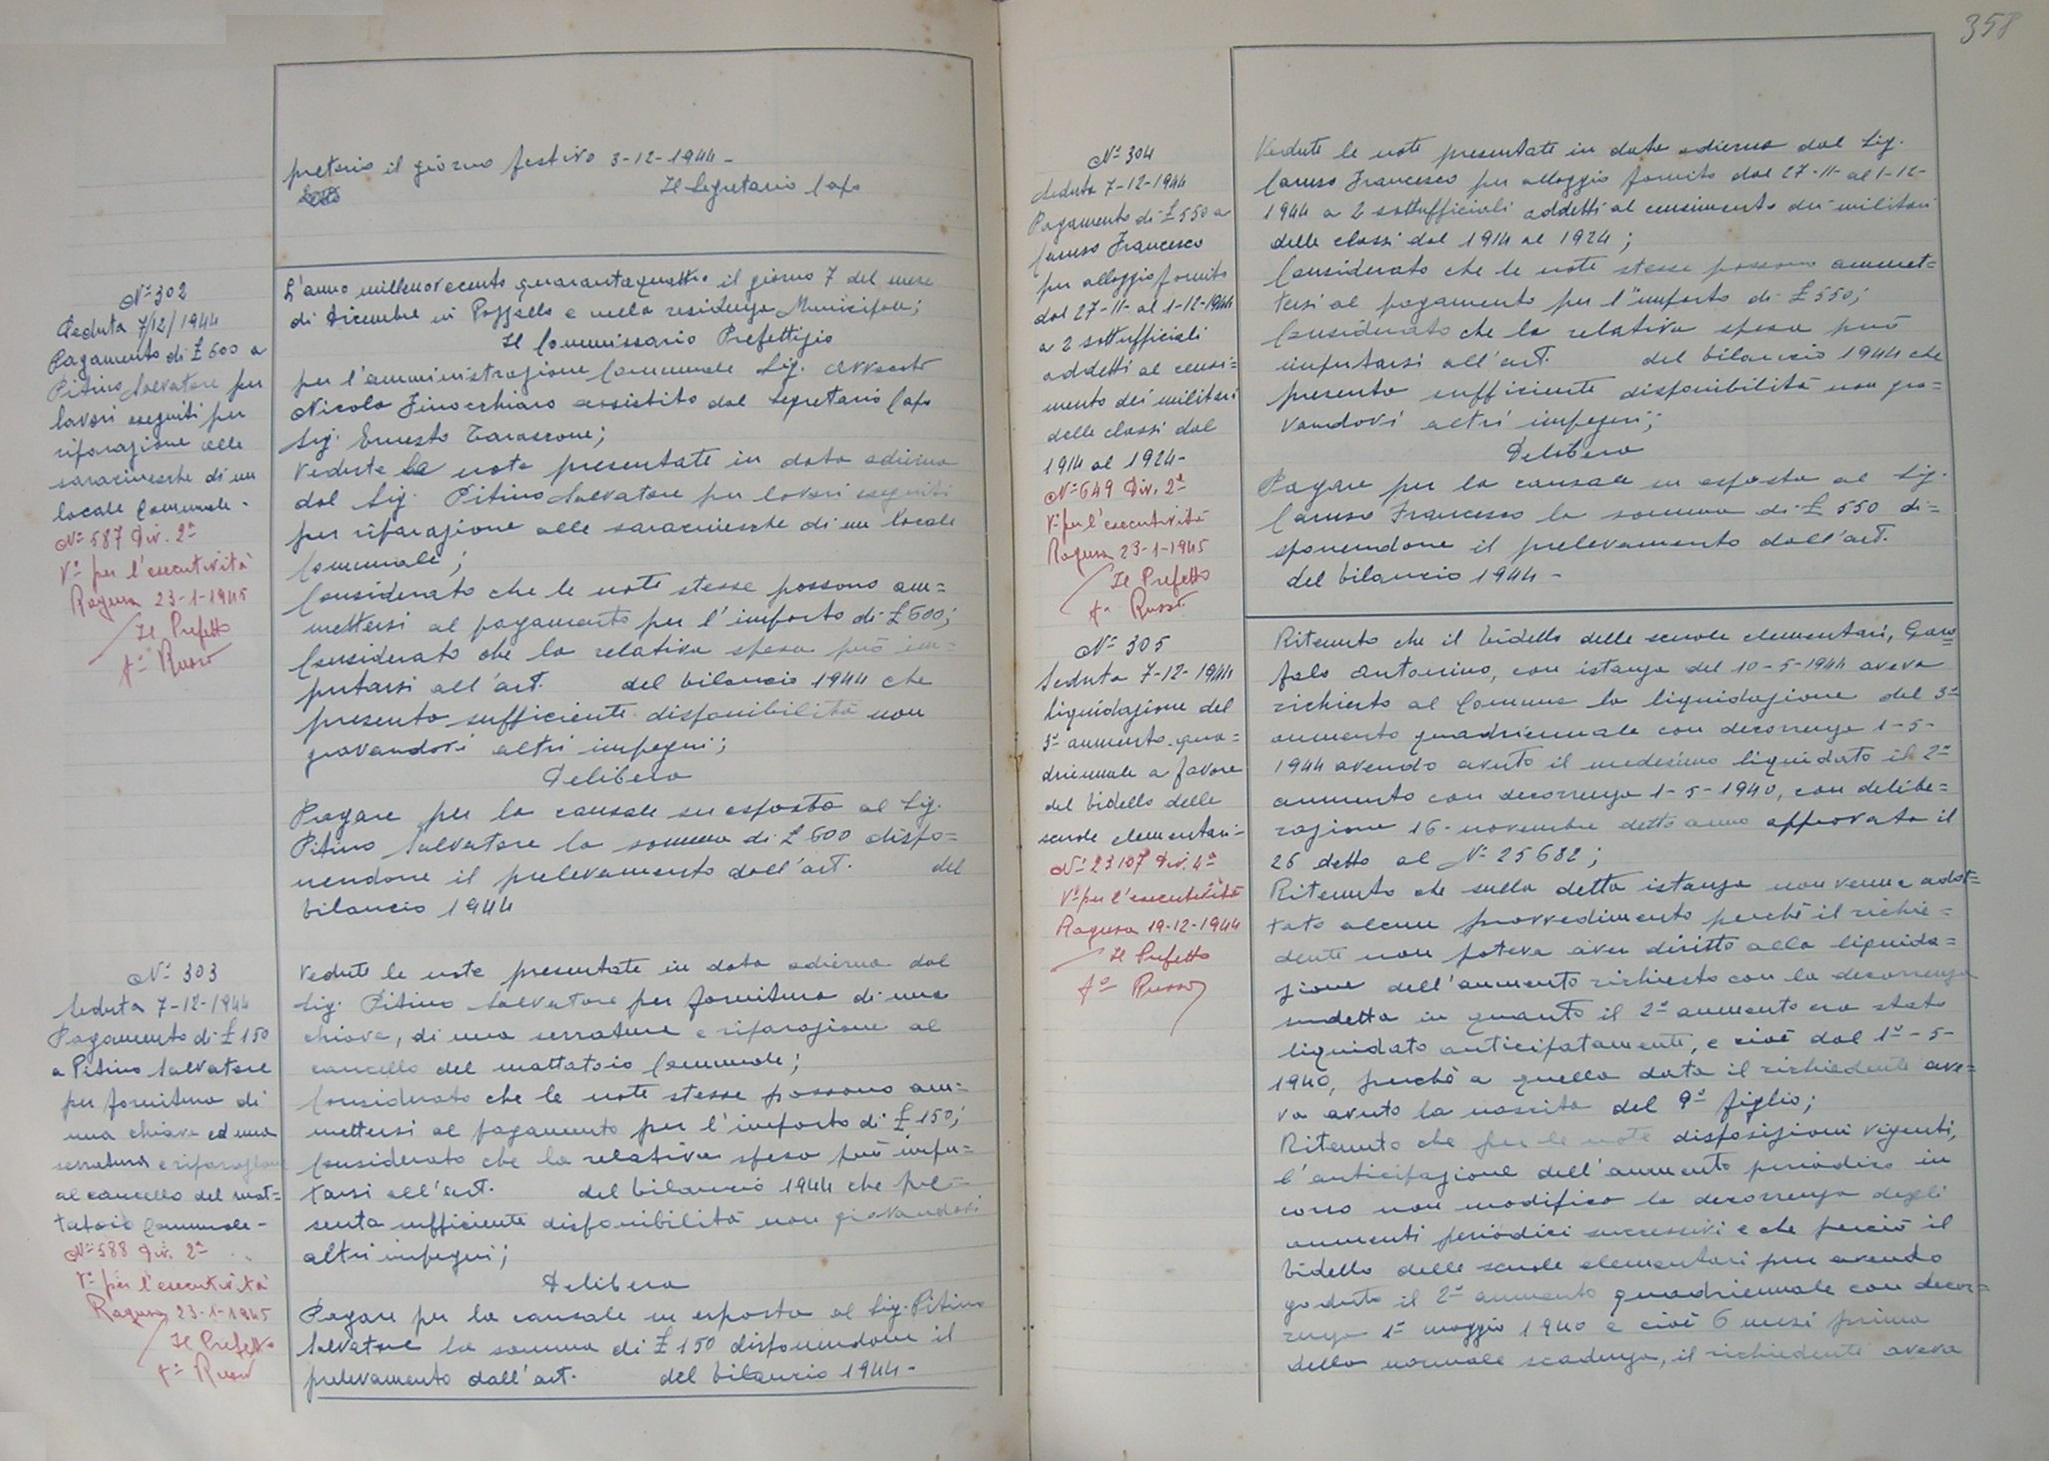 pretorio il giorno festivo 3-12-1944 -
Il Segretario Capo
N° 302
Seduta 7/12/1944
Pagamento di £ 600 a
Pitino Salvatore per
lavori eseguiti per
riparazione alle
saracinesche di un
locale Comunale -
N° 587 Div. 2ª
V° per l'esecutività
Ragusa 23-1-1945
Il Prefetto
f° Russo
L'anno millenovecento quarantaquattro il giorno 7 del mese
di Dicembre in Pozzallo e nella residenza Municipale;
Il Commissario Prefettizio
per l'amministrazione Comunale Sig. Avvocato
Nicola Finocchiaro assistito dal Segretario Capo
Sig. Ernesto Tarascone;
Vedute le note presentate in data odierna
dal Sig. Pitino Salvatore per lavori eseguiti
per riparazione alle saracinesche di un locale
Comunale;
Considerato che le note stesse possono am=
mettersi al pagamento per l'importo di £ 600;
Considerato che la relativa spesa può im=
putarsi all'art. del bilancio 1944 che
presenta sufficiente disponibilità non
gravandovi altri impegni;
Delibera
Pagare per la causale su esposta al Sig.
Pitino Salvatore la somma di £ 600 dispo=
nendone il prelevamento dall'art. del
bilancio 1944
N° 303
Seduta 7-12-1944
Pagamento di £ 150
a Pitino Salvatore
per fornitura di
una chiave ed una
serratura e riparazione
al cancello del mat=
tatoio Comunale -
N° 588 Div. 2ª
V° per l'esecutività
Ragusa 23-1-1945
Il Prefetto
f° Russo
Vedute le note presentate in data odierna dal
Sig. Pitino Salvatore per fornitura di una
chiave, di una serratura e riparazione al
cancello del mattatoio Comunale;
Considerato che le note stesse possono am=
mettersi al pagamento per l'importo di £ 150;
Considerato che la relativa spesa può impu=
tarsi all'art. del bilancio 1944 che pre=
senta sufficiente disponibilità non gravandovi
altri impegni;
Delibera
Pagare per la causale su esposta al Sig. Pitino
Salvatore la somma di £ 150 disponendone il
prelevamento dall'art. del bilancio 1944 -
358
N° 304
Seduta 7-12-1944
Pagamento di £ 550 a
Caruso Francesco
per alloggio fornito
dal 27-11- al 1-12-1944
a 2 sottufficiali
addetti al censi=
mento dei militari
delle classi dal
1914 al 1924 -
N° 649 Div. 2ª
V° per l'esecutività
Ragusa 23-1-1945
Il Prefetto
f° Russo
Vedute le note presentate in data odierna dal Sig.
Caruso Francesco per alloggio fornito dal 27-11- al 1-12-
1944 a 2 sottufficiali addetti al censimento dei militari
delle classi dal 1914 al 1924;
Considerato che le note stesse possono ammet=
tersi al pagamento per l'importo di £ 550;
Considerato che la relativa spesa può
imputarsi all'art. del bilancio 1944 che
presenta sufficiente disponibilità non gra=
vandovi altri impegni;
Delibera
Pagare per la causale su esposta al Sig.
Caruso Francesco la somma di £ 550 di=
sponendone il prelevamento dall'art.
del bilancio 1944 -
N° 305
Seduta 7-12-1944
Liquidazione del
3° aumento qua=
driennale a favore
del bidello delle
scuole elementari -
N° 23107 Div. 4ª
V° per l'esecutività
Ragusa 19-12-1944
Il Prefetto
f° Russo
Ritenuto che il bidello delle scuole elementari, Garo=
falo Antonino, con istanza del 10-5-1944 aveva
richiesto al Comune la liquidazione del 3°
aumento quadriennale con decorrenza 1-5-
1944 avendo avuto il medesimo liquidato il 2°
aumento con decorrenza 1-5-1940, con delibe=
razione 16 novembre detto anno approvata il
26 detto al N° 25682;
Ritenuto che sulla detta istanza non venne adot=
tato alcun provvedimento perchè il richie=
dente non poteva aver diritto alla liquida=
zione dell'aumento richiesto con la decorrenza
sudetta in quanto il 2° aumento era stato
liquidato anticipatamente, e cioè dal 1°-5-
1940, perchè a quella data il richiedente ave=
va avuto la nascita del 9° figlio;
Ritenuto che per le note disposizioni vigenti,
l'anticipazione dell'aumento periodico in
corso non modifica la decorrenza degli
aumenti periodici successivi e che perciò il
bidello delle scuole elementari pur avendo
goduto il 2° aumento quadriennale con decor=
renza 1° maggio 1940 e cioè 6 mesi prima
della normale scadenza, il richiedente aveva